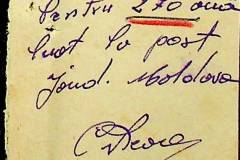 Pentru 270 ouă
luat la post
Jând. Moldova